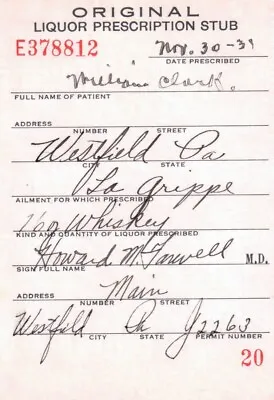 ORIGINAL
LIQUOR PRESCRIPTION STUB
E378812
Nov. 30-31
DATE PRESCRIBED
William Clark.
FULL NAME OF PATIENT
ADDRESS
NUMBER STREET
Westfield Pa
CITY STATE
La Grippe
AILMENT FOR WHICH PRESCRIBED
Whiskey
KIND AND QUANTITY OF LIQUOR PRESCRIBED
Howard M. Farwell M.D.
SIGN FULL NAME
Main
ADDRESS NUMBER STREET
Westfield Pa Y2263
CITY STATE PERMIT NUMBER
20